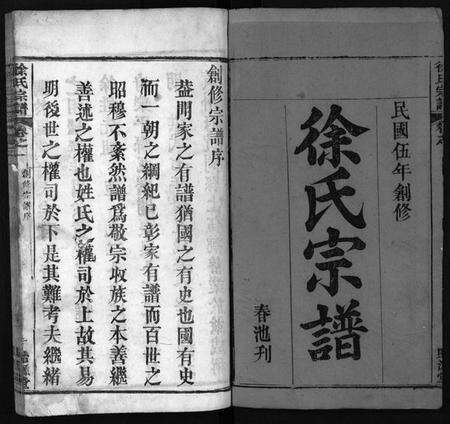 徐氏宗譜
民國伍年創修
徐氏宗譜
春池刊
創修宗譜序
蓋聞家之有譜猶國之有史也國有史
而一朝之綱紀已彰家有譜而百世之
昭穆不紊然譜爲敬宗收族之本善繼
善述之權也姓氏之權司於上故其易
明後世之權司於下是其難考夫繼緒
徐氏宗譜
卷之一
創修宗譜序